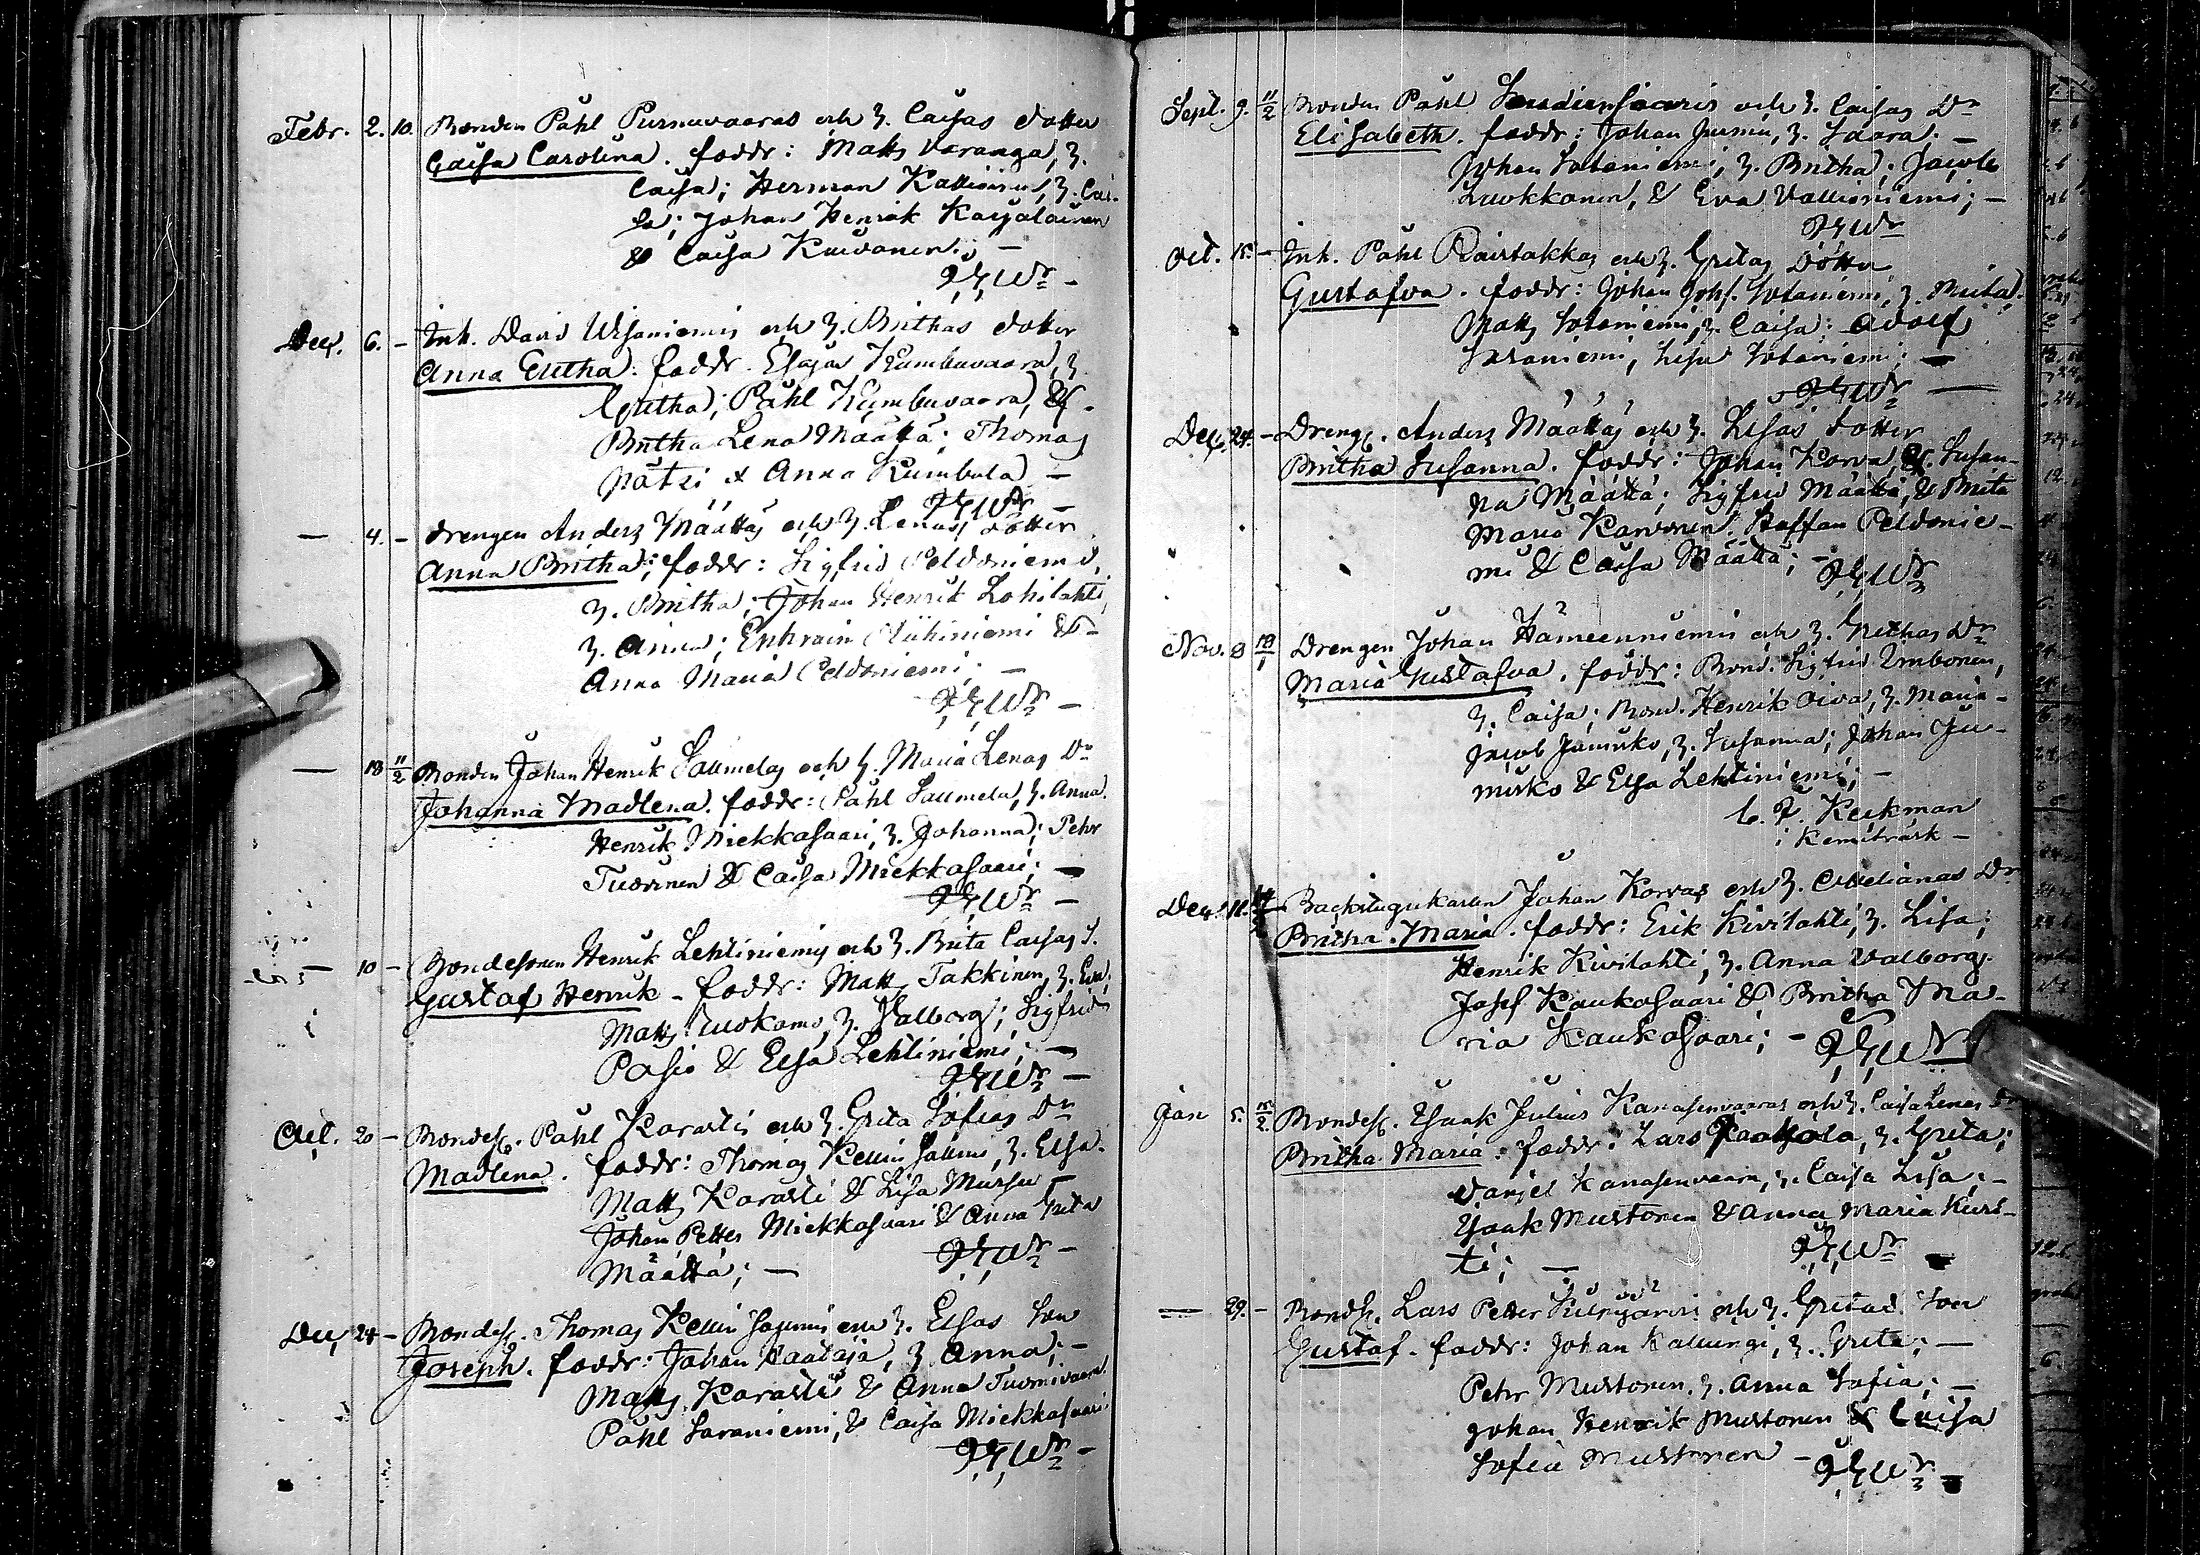 Febr. 2. 10. Bonden Påhl Purnuvaaras och h. Caisas dotter
Caisa Carolina. faddr: Matts Varanga, h.
Caisa; Herman Kallioinen, h. Cai-
sa; Johan Henrik Karjalainen
& Caisa Kuivanen; —
Dec. 6. – Inh. David Ulfaniemis och h. Brithas dotter
Anna Gretha. faddr. Esajas Kumbuvaara, h.
Gretha; Påhl Kumbuvaara, &
Britha Lena Määttä; Thomas
Pätsi & Anna Kumbula —
— 4. – Drengen Anders Määttäs och h. Lenas dotter
Anna Britha; faddr: Sigfrid Peldoniemi,
h. Britha; Johan Henrik Lohilahti,
h. Anna; Ephraim &
Anna Maria Peldoniemi; —
— 18 11/2 Bonden Johan Henrik Saumelas och h. Maria Lenas Dr
Johanna Madlena. faddr: Påhl Saumela, h. Anna.
Henrik Miekkasaari, h. Johanna; Pehr
Tuorinen & Caisa Miekkasaari; —
— 10 – Bondesonen Henrik Lehtiniemis och h. Brita Caisas S.
Gustaf Henrik – faddr: Matts Takkinen, h. Eva,
Matts h. Valborg; Sigfrid
Posio & Elsa Lehtiniemi; —
Oct. 20 – Bondes. Påhl Karastis och h. Greta Sofias Dr
Madlena. faddr: Thomas h. Elsa.
Matts Karasti & Lisa Mursu —
Johan Petter Miekkasaari & Anna Greta
Määttä; —
Dec. 24 – Bondes. Thomas och h. Elsas Son
Joseph. faddr: Johan Kaataja, h. Anna; –
Matts Karasti & Anna Tuomivaara
Påhl Saraniemi, & Caisa Miekkasaari
Sept. 9. 11/2 Bonden Påhl och h. Caisas Dr
Elisabeth. faddr: Johan h. Saara. —
Johan Sotaniemi, h. Britha; Jacob
Luokkanen, & Eva Vallioniemi; —
Oct. 15. – Inh. Påhl Raistakkas och h. Gretas Dotter
Gustafva. faddr: Johan Johs. Sotaniemi, h.
Matts Sotaniemi, h. Caisa: Adolf
Saraniemi, Lisa Sotaniemi; —
Dec. 24. – Drengs. Anders Määttäs och h. Lisas dotter
Britha Susanna. faddr: Johan Korva, & Susan-
na Määttä; Sigfrid Määttä, & Brita
Maria Karvonen. Staffan Peldonie-
mi & Caisa Määttä; —
Nov. 8 18/1 Drengen Johan Hämeenniemis och h. Grethas Dr
Maria Gustafva. faddr: Bond. Sigfrid Imbonen,
h. Caisa; Bond. Henrik Oiva, h. Maria –
Jacob Jumisko, h. Susanna; Johan Ju-
misko & Elsa Lehtiniemi; —
C. F. Keckman
i Kemiträsk —
Dec. 11. Backstugukarlen Johan Korvas och h. Dr
Britha Maria. faddr: Erik Kivilahti, h. Lisa;
Henrik Kivilahti, h. Anna Valborg.
Josef Kaukosaari & Britha Ma-
ria Kaukosaari; —
Jan 5. 15/2. Bondes. Isaak Julius Kanasenvaaras och h. Caisa Lenas Dr
Britha Maria. faddr: Lars h. Greta;
Daniel Kanasenvaara, h. Caisa Lisa; –
Isaak Mustonen & Anna Maria Kurt-
ti; —
— 29. – Bonds. Lars Petter och h. Gretas Son
Gustaf. faddr: Johan Kallungi, h. Greta; —
Pehr Mustonen, h. Anna Sofia; —
Johan Henrik Mustonen & Caisa
Sofia Mustonen —